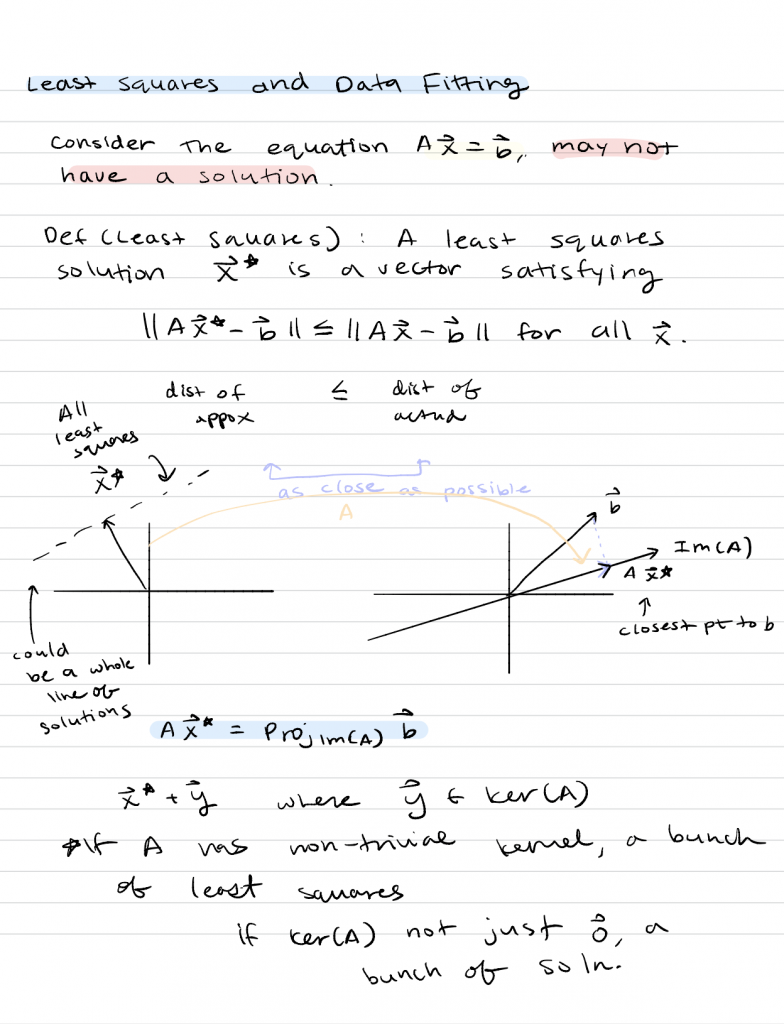 Least Squares and Data Fitting
Consider the equation A𝑥⃗ = b⃗, may not
have a solution.
Def (Least Squares): A least squares
solution x⃗* is a vector satisfying
||Ax⃗* - b⃗|| ≤ ||Ax⃗ - b⃗|| for all x⃗.
dist of ≤ dist of
appox actual
All
least
squares
x⃗*
as close as possible
A
b⃗
Im(A)
A x⃗*
closest pt to b
could
be a whole
line of
solutions
A x⃗* = Proj im(A) b⃗
x⃗* + y⃗ where y⃗ ∈ ker(A)
*If A has non-trivial kernel, a bunch
of least squares
if ker(A) not just 0⃗, a
bunch of soln.